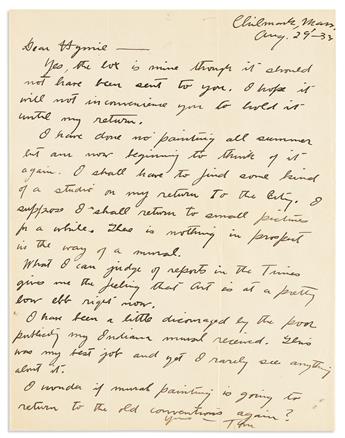 Chilmark, Mass.
Aug. 29 - 33
Dear Hymie —
Yes, the box is mine though it should
not have been sent to you. I hope it
will not inconvenience you to hold it
until my return.
I have done no painting all summer
but am now beginning to think of it
again. I shall have to find some kind
of a studio on my return to the City. I
suppose I shall return to small pictures
for a while. There is nothing in prospect
in the way of a mural.
What I can judge of reports in the Times
gives me the feeling that Art is at a pretty
low ebb right now.
I have been a little discouraged by the poor
publicity my Indiana mural received. This
was my best job and yet I rarely see anything
about it.
I wonder if mural painting is going to
return to the old conventions again?
Yours Tom